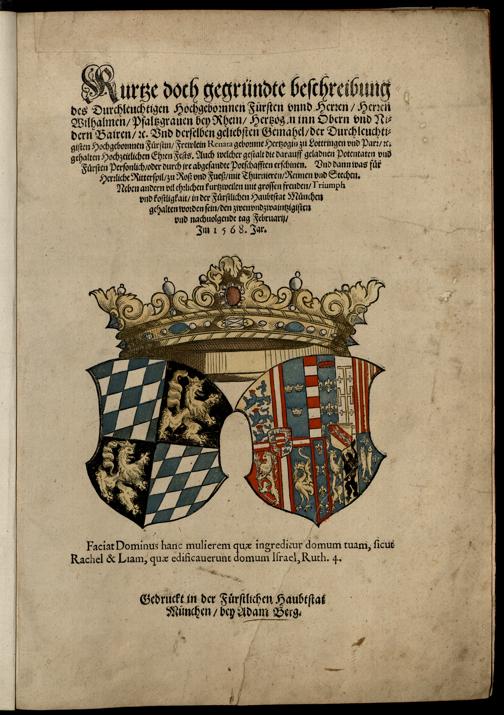 Kurtze doch gegründte beschreibung
des Durchleuchtigen Hochgebornnen Fürsten vnnd Herren/ Herren
Wilhalmen/ Pfaltzgrauen bey Rhein/ Hertzog.n inn Obern vnd Ni-
dern Bairen/ ꝛc. Vnd derselben geliebsten Gemahel/ der Durchleuchti-
gisten Hochgebornnen Fürstin/ Frewlein Renata gebornne Hertzogin zu Lottringen vnd Parr/ ꝛc.
gehalten Hochzeitlichen Ehren Fests. Auch welcher gestalt die darauff geladnen Potentaten vnd
Fürsten Persönlich/ oder durch ire abgesandte Potschafften erschinen. Vnd dann was für
Herrliche Ritterspil/ zu Roß vnd Fueß/ mit Thurnieren/ Rennen vnd Stechen.
Neben andern vil ehrlichen kurtzweilen mit grossen freuden/ Triumph
vnd kostligkait/ in der Fürstlichen Haubtstat München
gehalten worden sein/ den zwenvndzwaintzigisten
vnd nachuolgende tag Februarij/
Im 1568. Jar.
Faciat Dominus hanc mulierem quæ ingreditur domum tuam, sicut
Rachel & Liam, quæ edificauerunt domum Israel, Ruth. 4.
Gedruckt in der Fürstlichen Haubtstat
München/ bey Adam Berg.